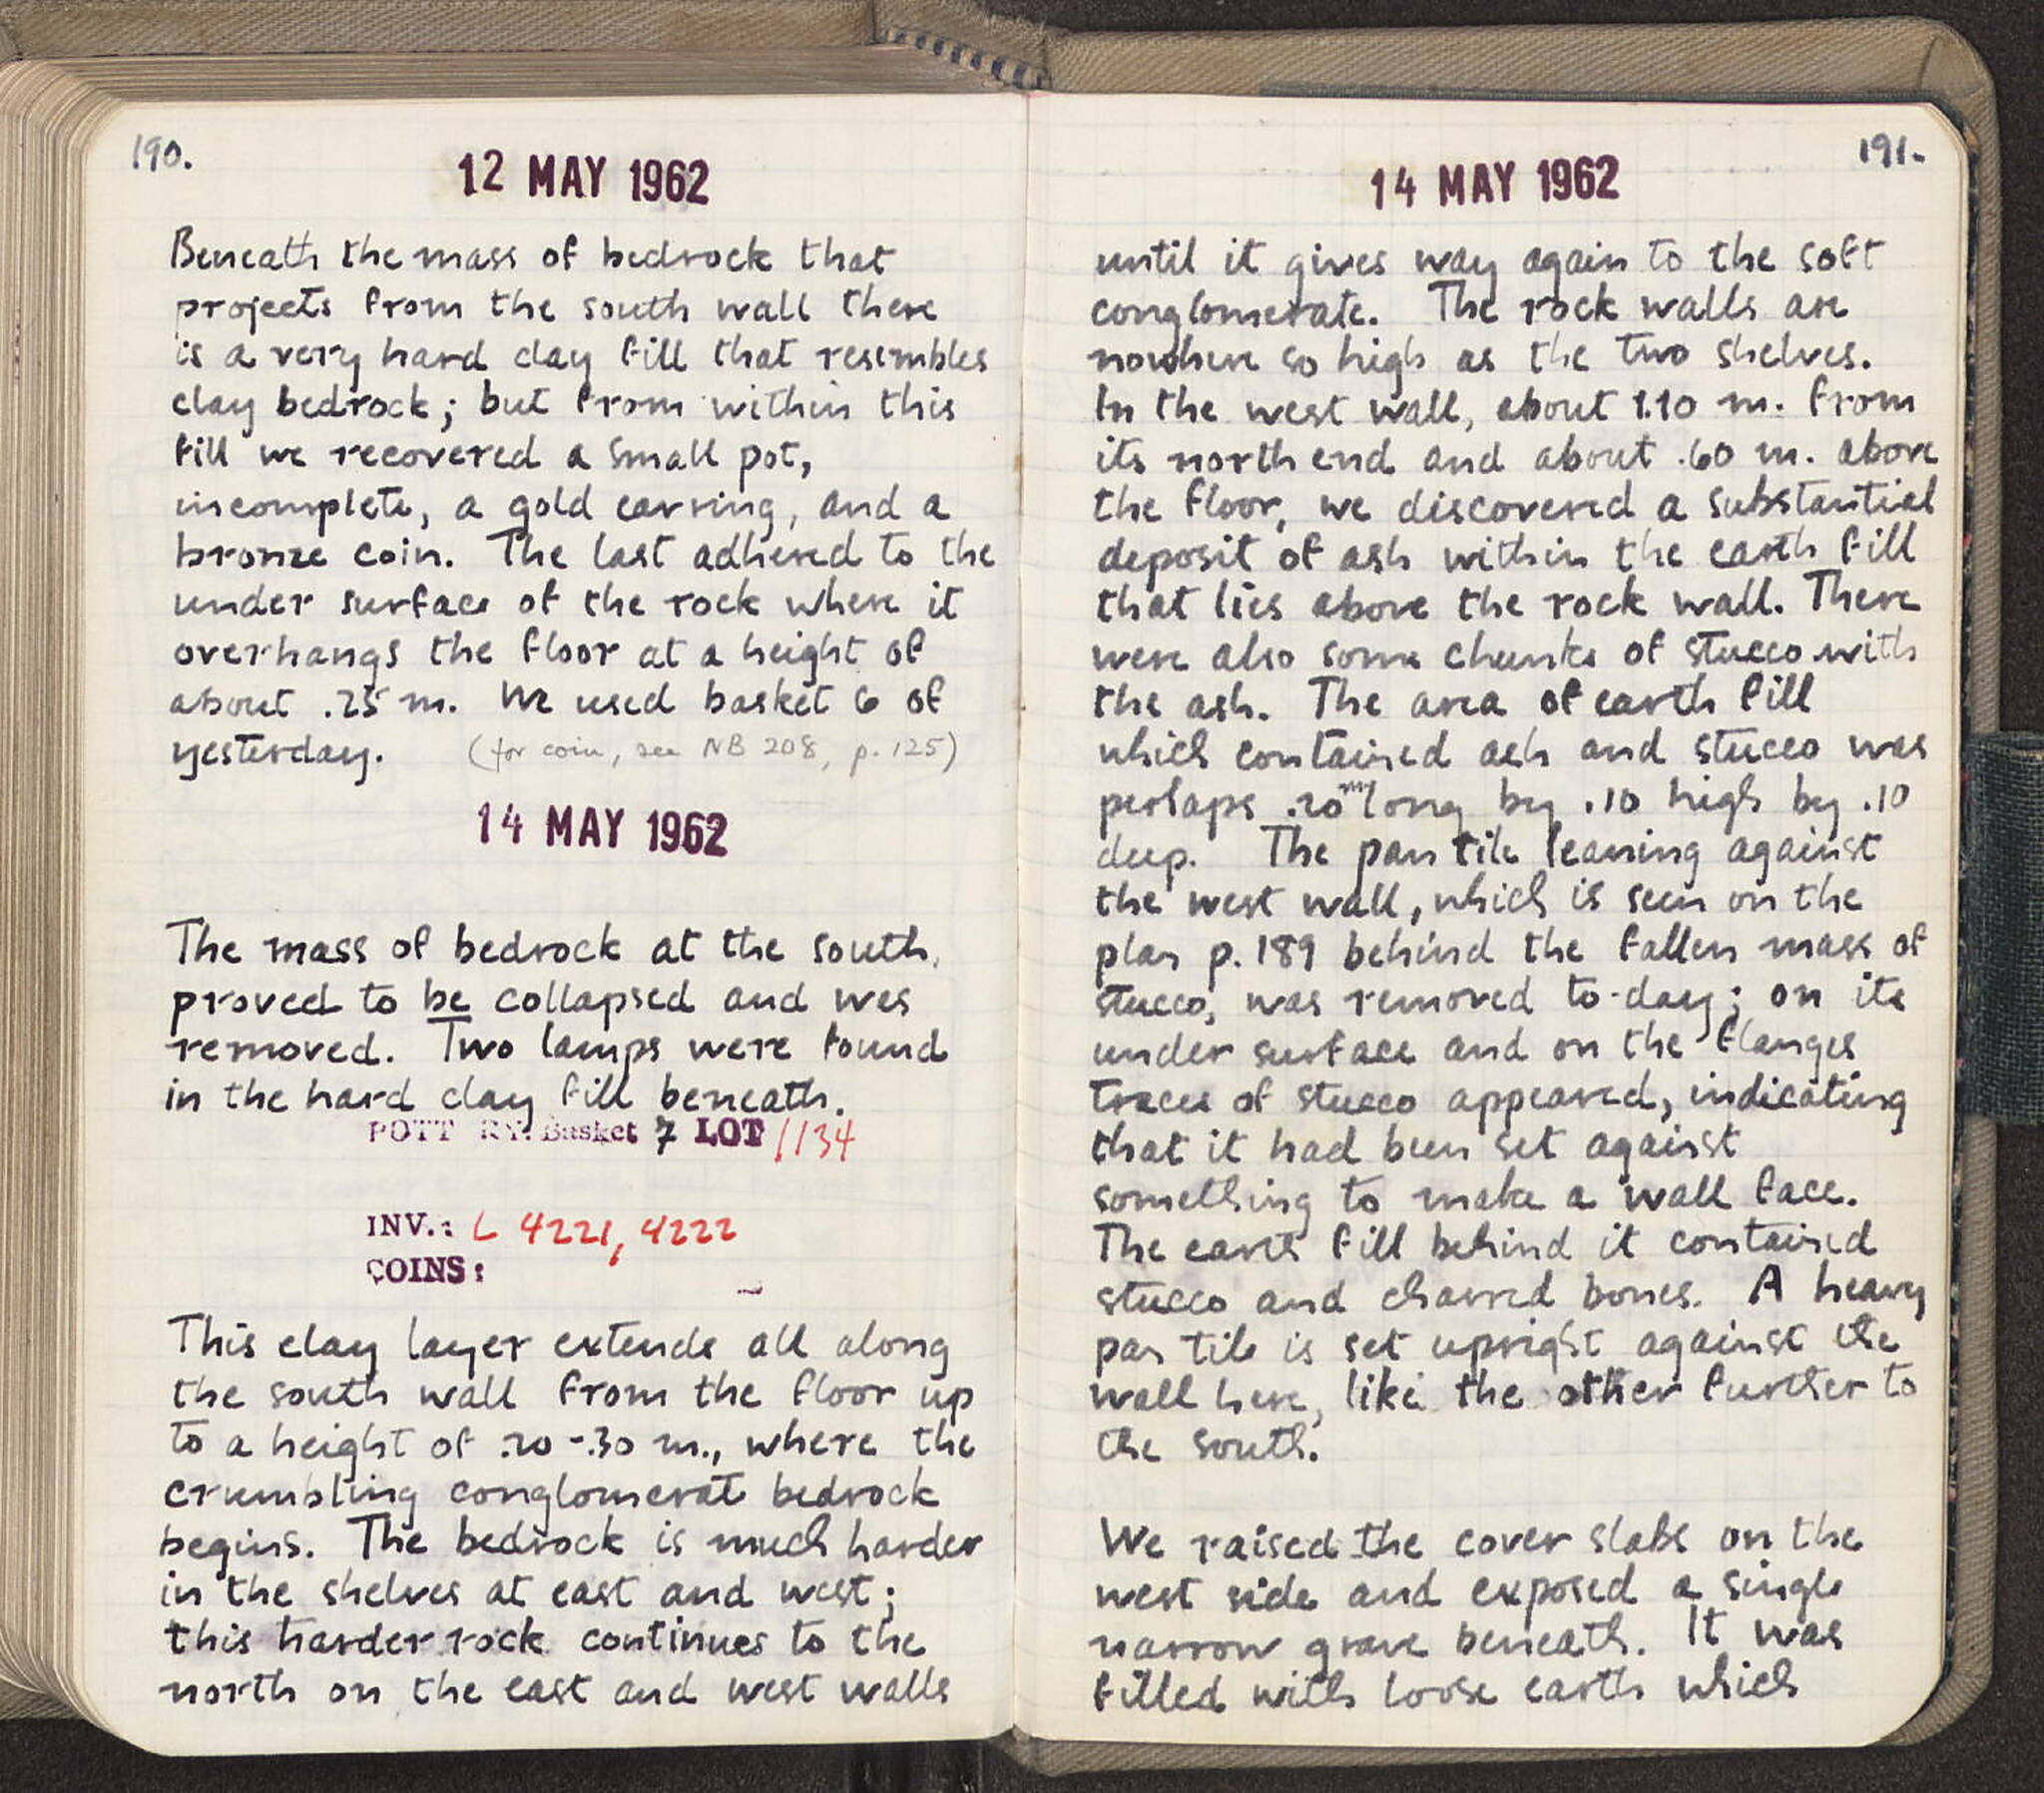 190.
12 MAY 1962
Beneath the mass of bedrock that
projects from the south wall there
is a very hard clay fill that resembles
clay bedrock; but from within this
fill we recovered a small pot,
incomplete, a gold earring, and a
bronze coin. The last adhered to the
under surface of the rock where it
overhangs the floor at a height of
about .25 m. We used basket 6 of
yesterday. (for coin, see NB 208, p. 125)
14 MAY 1962
The mass of bedrock at the south,
proved to be collapsed and was
removed. Two lamps were found
in the hard clay fill beneath.
POTT RY: Basket 7 LOT 1134
INV.: L 4221, 4222
COINS:
This clay layer extends all along
the south wall from the floor up
to a height of .20-.30 m., where the
crumbling conglomerate bedrock
begins. The bedrock is much harder
in the shelves at east and west;
this harder rock continues to the
north on the east and west walls
191.
14 MAY 1962
until it gives way again to the soft
conglomerate. The rock walls are
nowhere so high as the two shelves.
In the west wall, about 1.10 m. from
its north end and about .60 m. above
the floor, we discovered a substantial
deposit of ash within the earth fill
that lies above the rock wall. There
were also some chunks of stucco with
the ash. The area of earth fill
which contained ash and stucco was
perhaps .20 m long by .10 high by .10
deep. The pan tile leaning against
the west wall, which is seen on the
plan p. 189 behind the fallen mass of
stucco, was removed to-day; on its
under surface and on the flanges
traces of stucco appeared, indicating
that it had been set against
something to make a wall face.
The earth fill behind it contained
stucco and charred bones. A heavy
pan tile is set upright against the
wall here, like the other further to
the south.
We raised the cover slabs on the
west side and exposed a single
narrow grave beneath. It was
filled with loose earth which